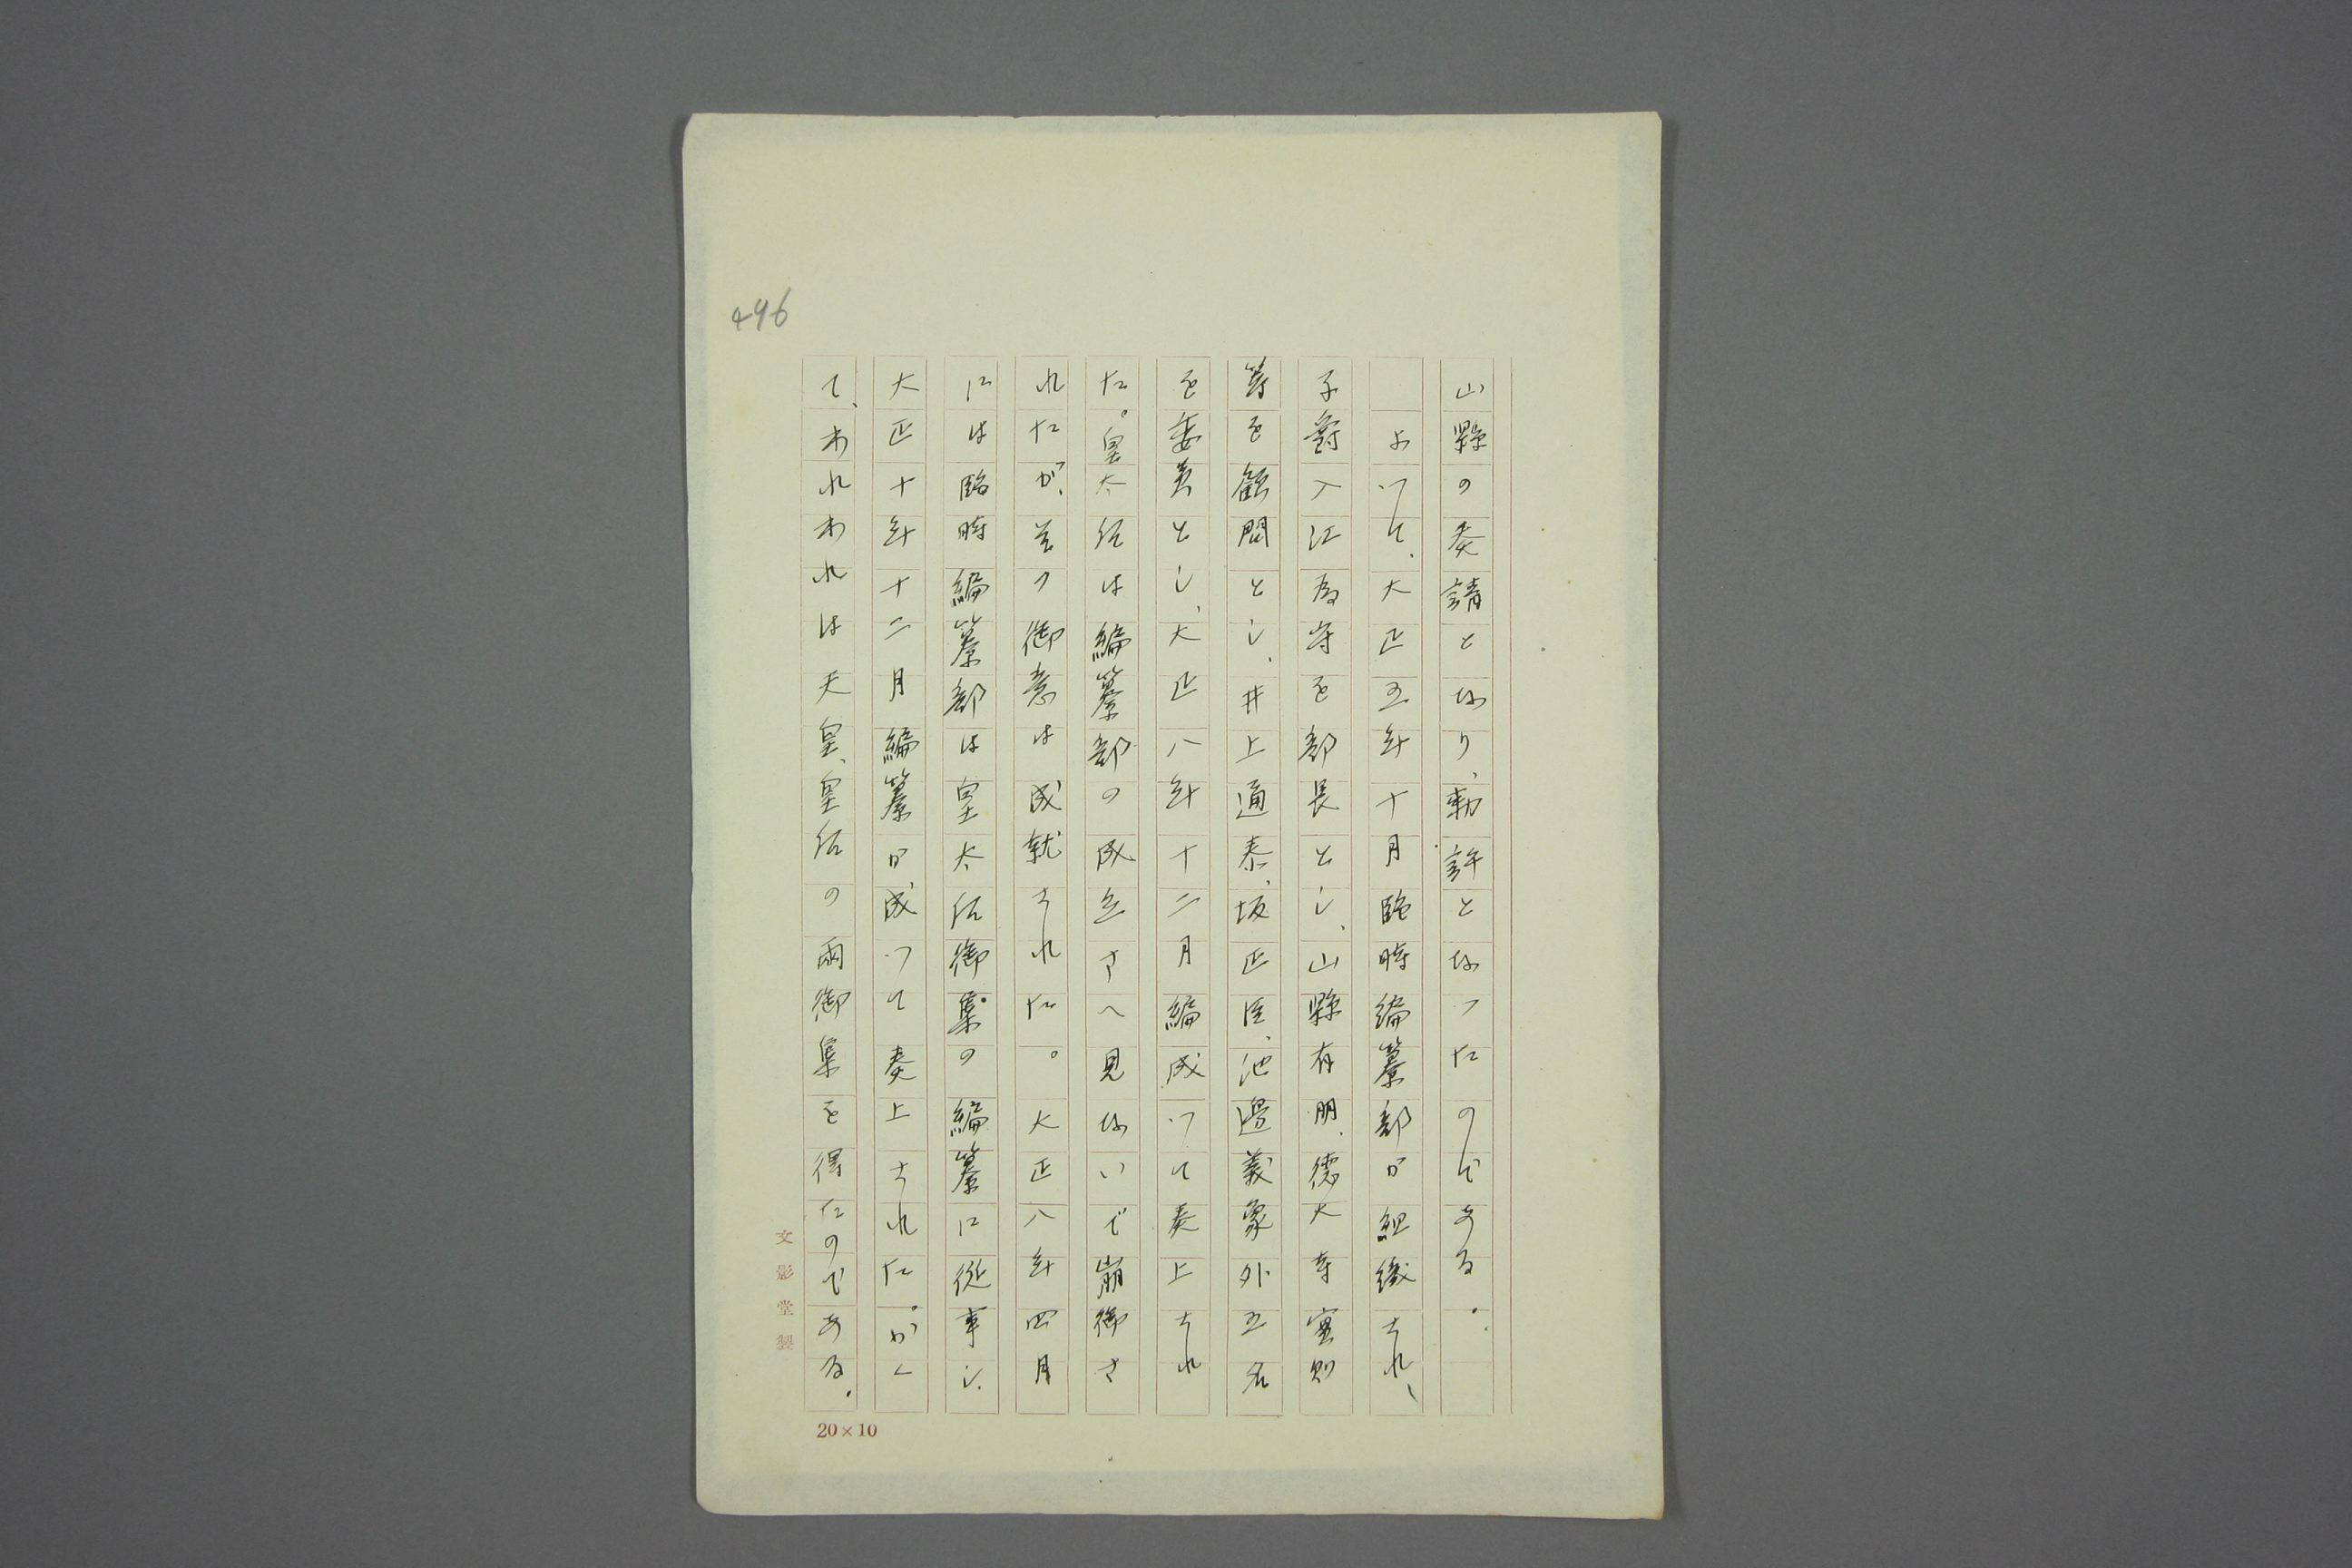 496
山縣の奏請となり、勅許となつたのである。
よつて、大正五年十月臨時編纂部が組織され、
子爵入江為守を部長とし、山縣有朋、德大寺實則
等を顧問とし、井上通泰、坂正臣、池邊義象外五名
を委員とし、大正八年十二月編成つて奏上され
た。皇太后は編纂部の成立さへ見ないで崩御さ
れたが、其の御意は成就された。大正八年四月
には臨時編纂部は皇太后御集の編纂に從事し、
大正十年十二月編纂が成つて奏上された。かく
て、われわれは天皇、皇后の兩御集を得たのである。
文影堂製
20×10